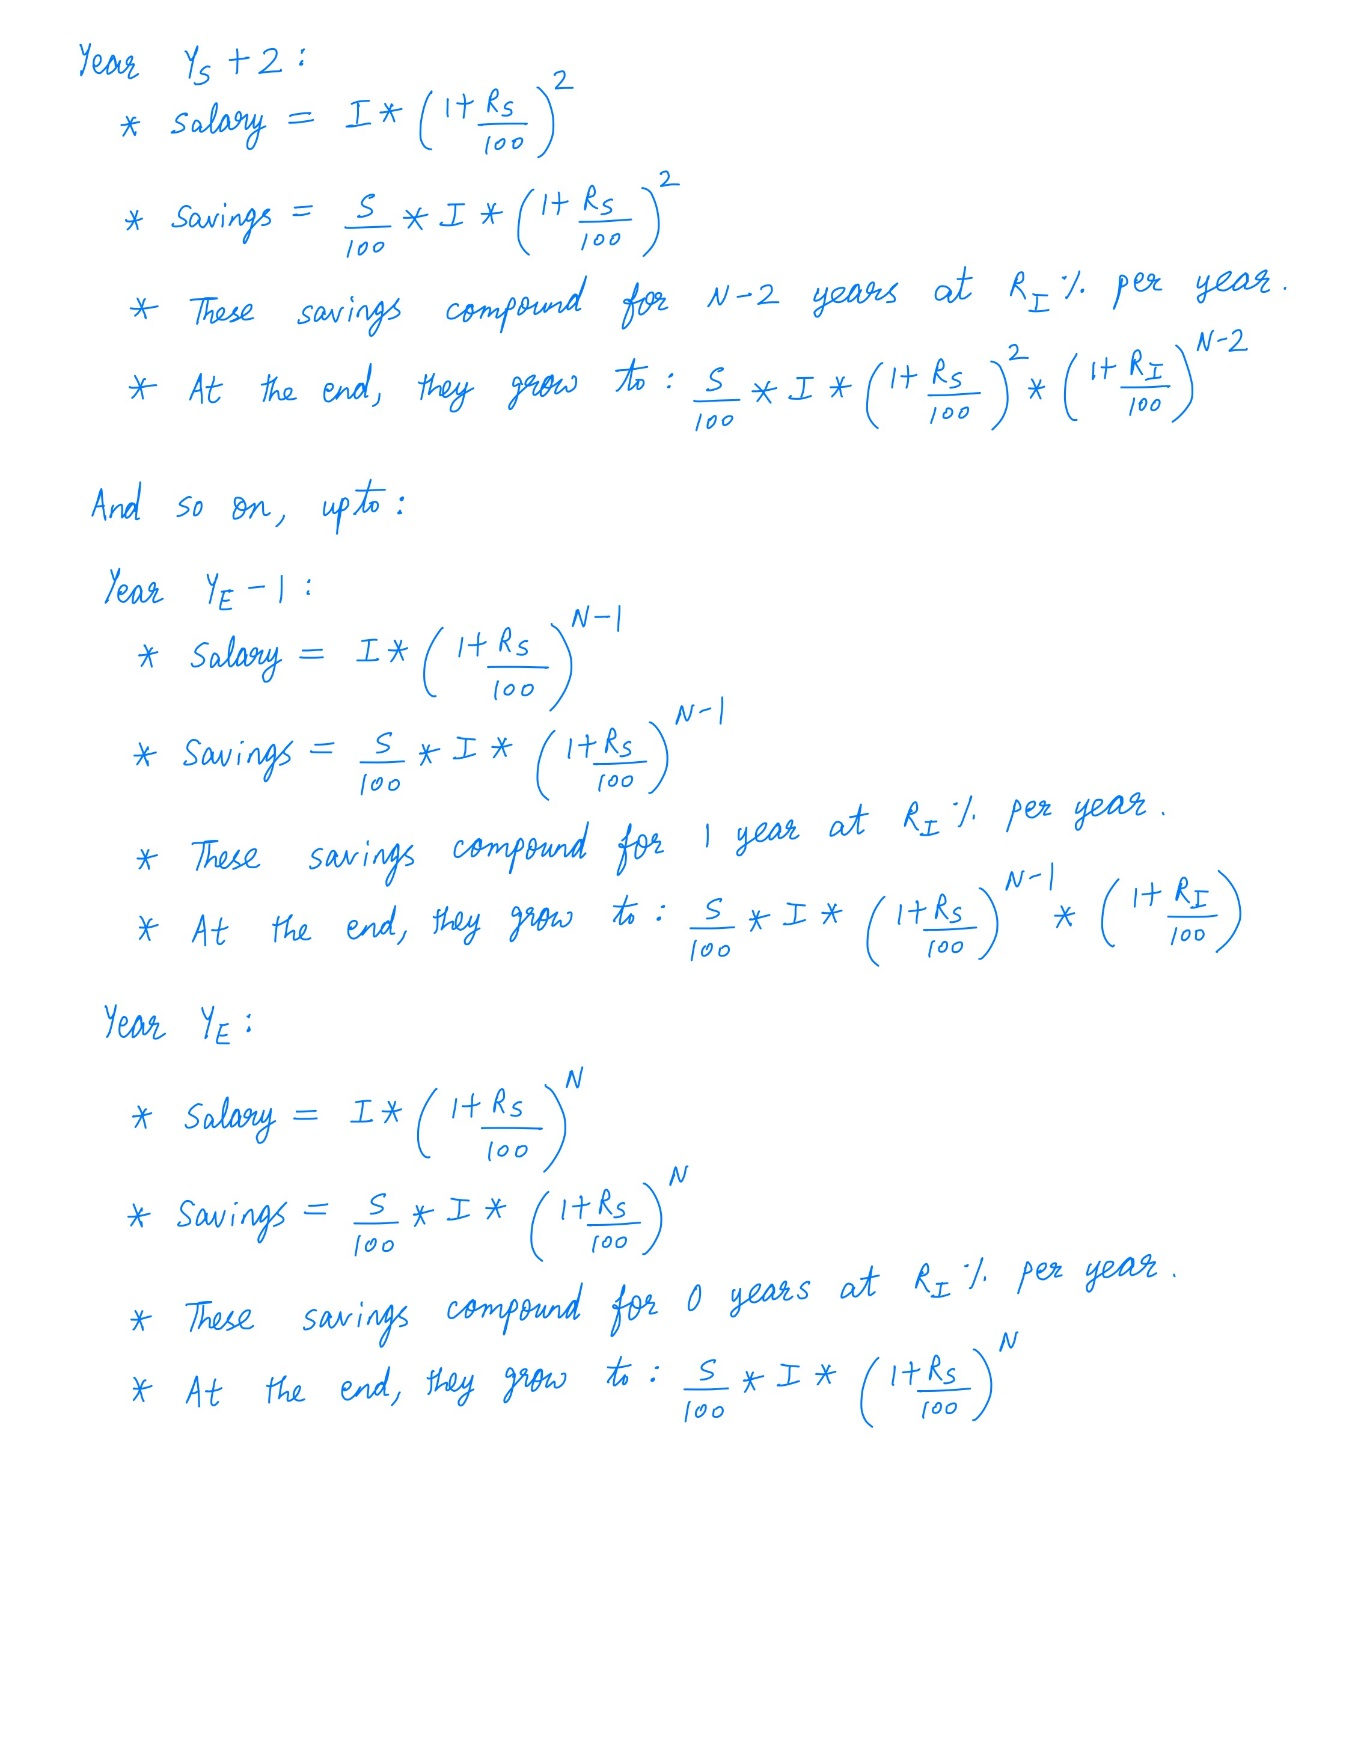 Year Y_S + 2 :
* Salary = I * (1 + R_S/100)^2
* Savings = S/100 * I * (1 + R_S/100)^2
* These savings compound for N-2 years at R_I % per year.
* At the end, they grow to : S/100 * I * (1 + R_S/100)^2 * (1 + R_I/100)^(N-2)
And so on, upto :
Year Y_E - 1 :
* Salary = I * (1 + R_S/100)^(N-1)
* Savings = S/100 * I * (1 + R_S/100)^(N-1)
* These savings compound for 1 year at R_I % per year.
* At the end, they grow to : S/100 * I * (1 + R_S/100)^(N-1) * (1 + R_I/100)
Year Y_E :
* Salary = I * (1 + R_S/100)^N
* Savings = S/100 * I * (1 + R_S/100)^N
* These savings compound for 0 years at R_I % per year.
* At the end, they grow to : S/100 * I * (1 + R_S/100)^N